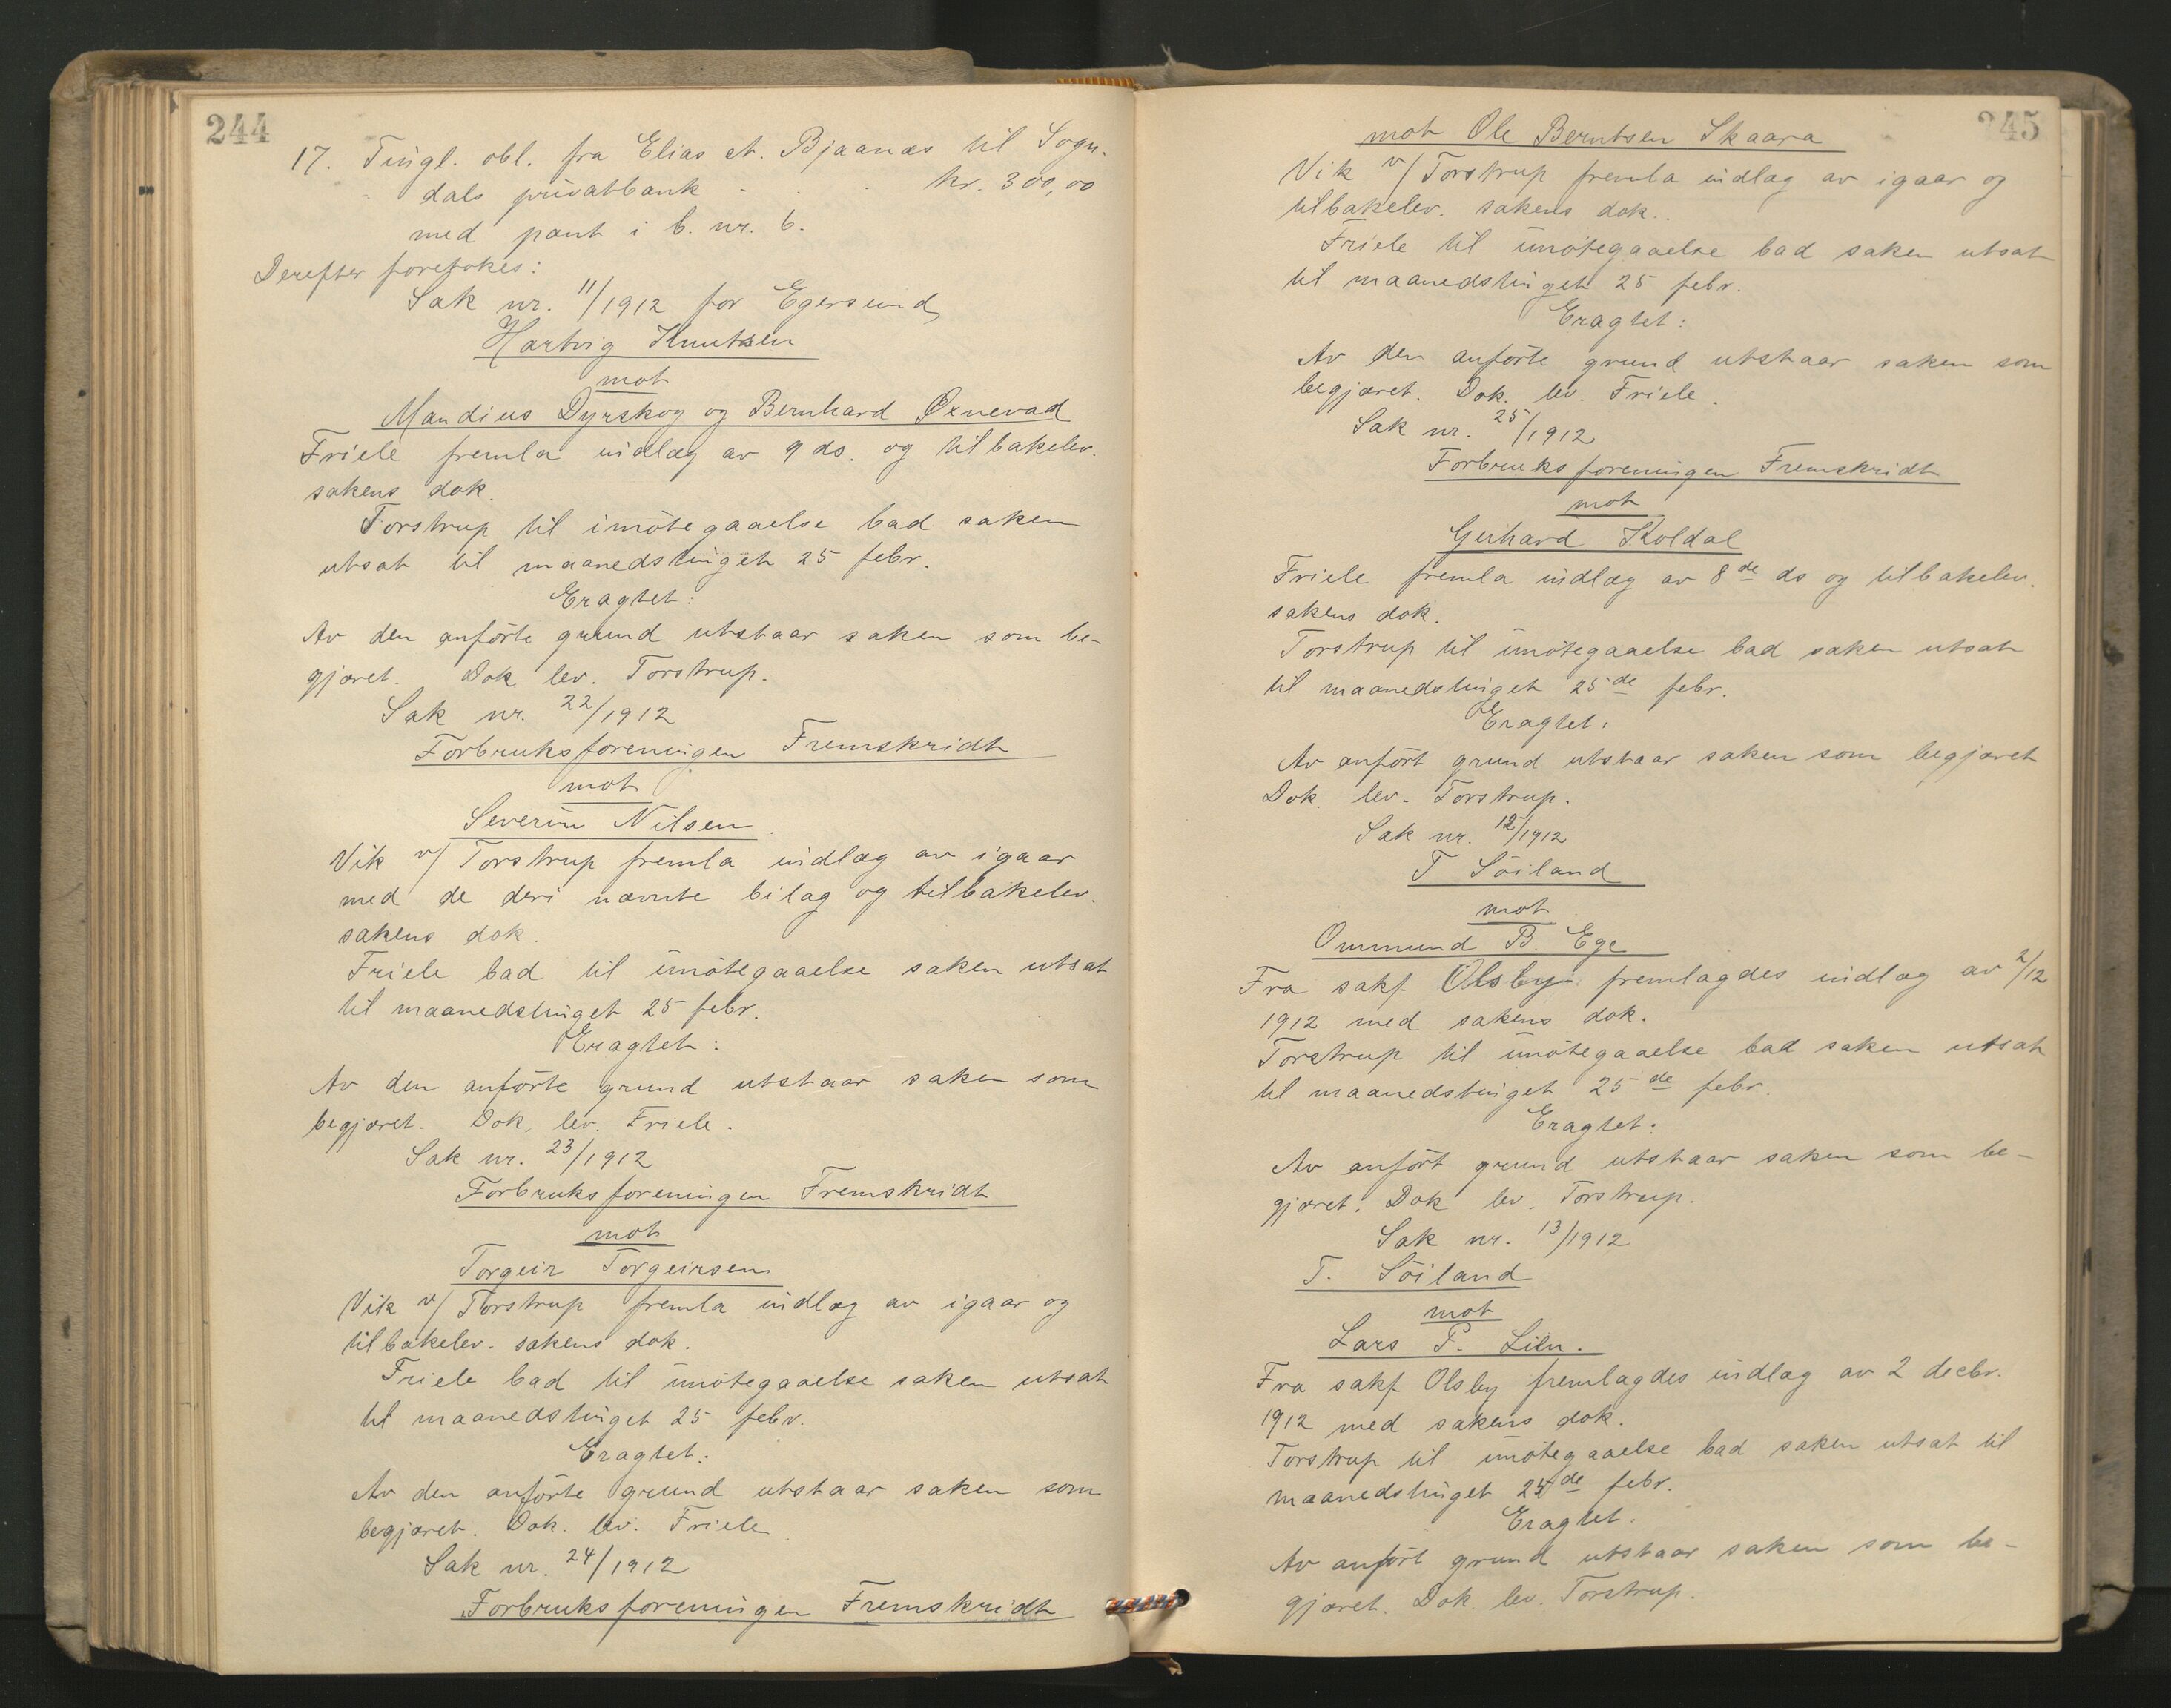 244
17. Tingl. obl. fra Elias A. Bjaanæs til Sogn-
dals privatbank - . . kr. 300,00
med pant i b. nr. 6.
Derefter foretokes:
Sak nr. 11/1912 for Egersund
Hartvig Knutsen
mot
Mandius Dyrskog og Bernhard Øxnevad
Friele fremla indlæg av 9 ds. og tilbakelev.
sakens dok.
Torstrup til imøtegaaelse bad saken
utsat til maanedstinget 25 febr.
Eragtet:
Av den anførte grund utstaar saken som be-
gjæret. Dok lev. Torstrup.
Sak nr. 22/1912
Forbruksforeningen Fremskridt
mot
Severin Nilsen.
Vik v/ Torstrup fremla indlæg av igaar
med de deri nævnte bilag og tilbakelev.
sakens dok.
Friele bad til imøtegaaelse saken utsat
til maanedstinget 25 febr.
Eragtet:
Av den anførte grund utstaar saken som
begjæret. Dok. lev. Friele.
Sak nr. 23/1912
Forbruksforeningen Fremskridt
mot
Torgeir Torgeirsen
Vik v/ Torstrup fremla indlæg av igaar og
tilbakelev. sakens dok.
Friele bad til imøtegaaelse saken utsat
til maanedstinget 25 febr.
Eragtet:
Av den anførte grund utstaar saken som
begjæret. Dok. lev. Friele
Sak nr. 24/1912
Forbruksforeningen Fremskridt
245
mot Ole Berntsen Skaara
Vik v/ Torstrup fremla indlæg av igaar og
tilbakelev. sakens dok..
Friele til imøtegaaelse bad saken utsat
til maanedstinget 25 febr.
Eragtet:
Av den anførte grund utstaar saken som
begjæret. Dok. lev. Friele.
Sak nr. 25/1912
Forbruksforeningen Fremskridt
mot
Gerhard Koldal
Friele fremla indlæg av 8de ds og tilbakelev.
sakens dok.
Torstrup til imøtegaaelse bad saken utsat
til maanedstinget 25de febr.
Eragtet:
Av anført grund utstaar saken som begjæret
Dok. lev. Torstrup.
Sak nr. 12/1912
T Søiland
mot
Ommund B. Ege
Fra sakf. Olsby fremlagdes indlæg av 2/12
1912 med sakens dok.
Torstrup til imøtegaaelse bad saken utsat
til maanedstinget 25de febr.
Eragtet:
Av anført grund utstaar saken som be-
gjæret. Dok lev. Torstrup.
Sak nr. 13/1912
T. Søiland
mot
Lars P. Lien.
Fra sakf. Olsby fremlagdes indlæg av 2 decbr.
1912 med sakens dok.
Torstrup til imøtegaaelse bad saken utsat til
maanedstinget 25de febr.
Eragtet.
Av anført grund utstaar saken som be-
gjæret. Dok. lev. Torstrup.